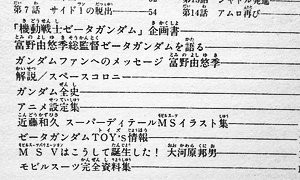 第7話 サイド1の脱出 54 第14話 アムロ再び
「機動戦士ゼータガンダム」企画書
富野由悠季総監督ゼータガンダムを語る
ガンダムファンへのメッセージ 富野由悠季
解説/スペースコロニー
ガンダム全史
アニメ設定集
近藤和久 スーパーディテールMSイラスト集
ゼータガンダムTOY's情報
MSVはこうして誕生した! 大河原邦男
モビルスーツ完全資料集